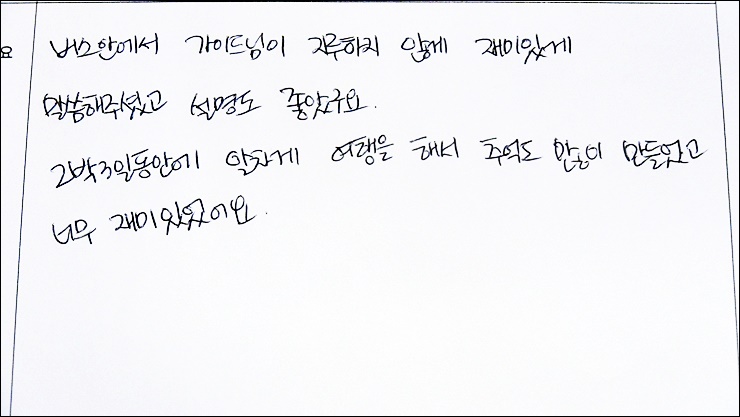 요
버스안에서 가이드님이 지루하지 않게 재미있게
말씀해주셨고 설명도 좋았구요.
2박3일동안에 알차게 여행을 해서 추억도 많이 만들었고
너무 재미있었어요.